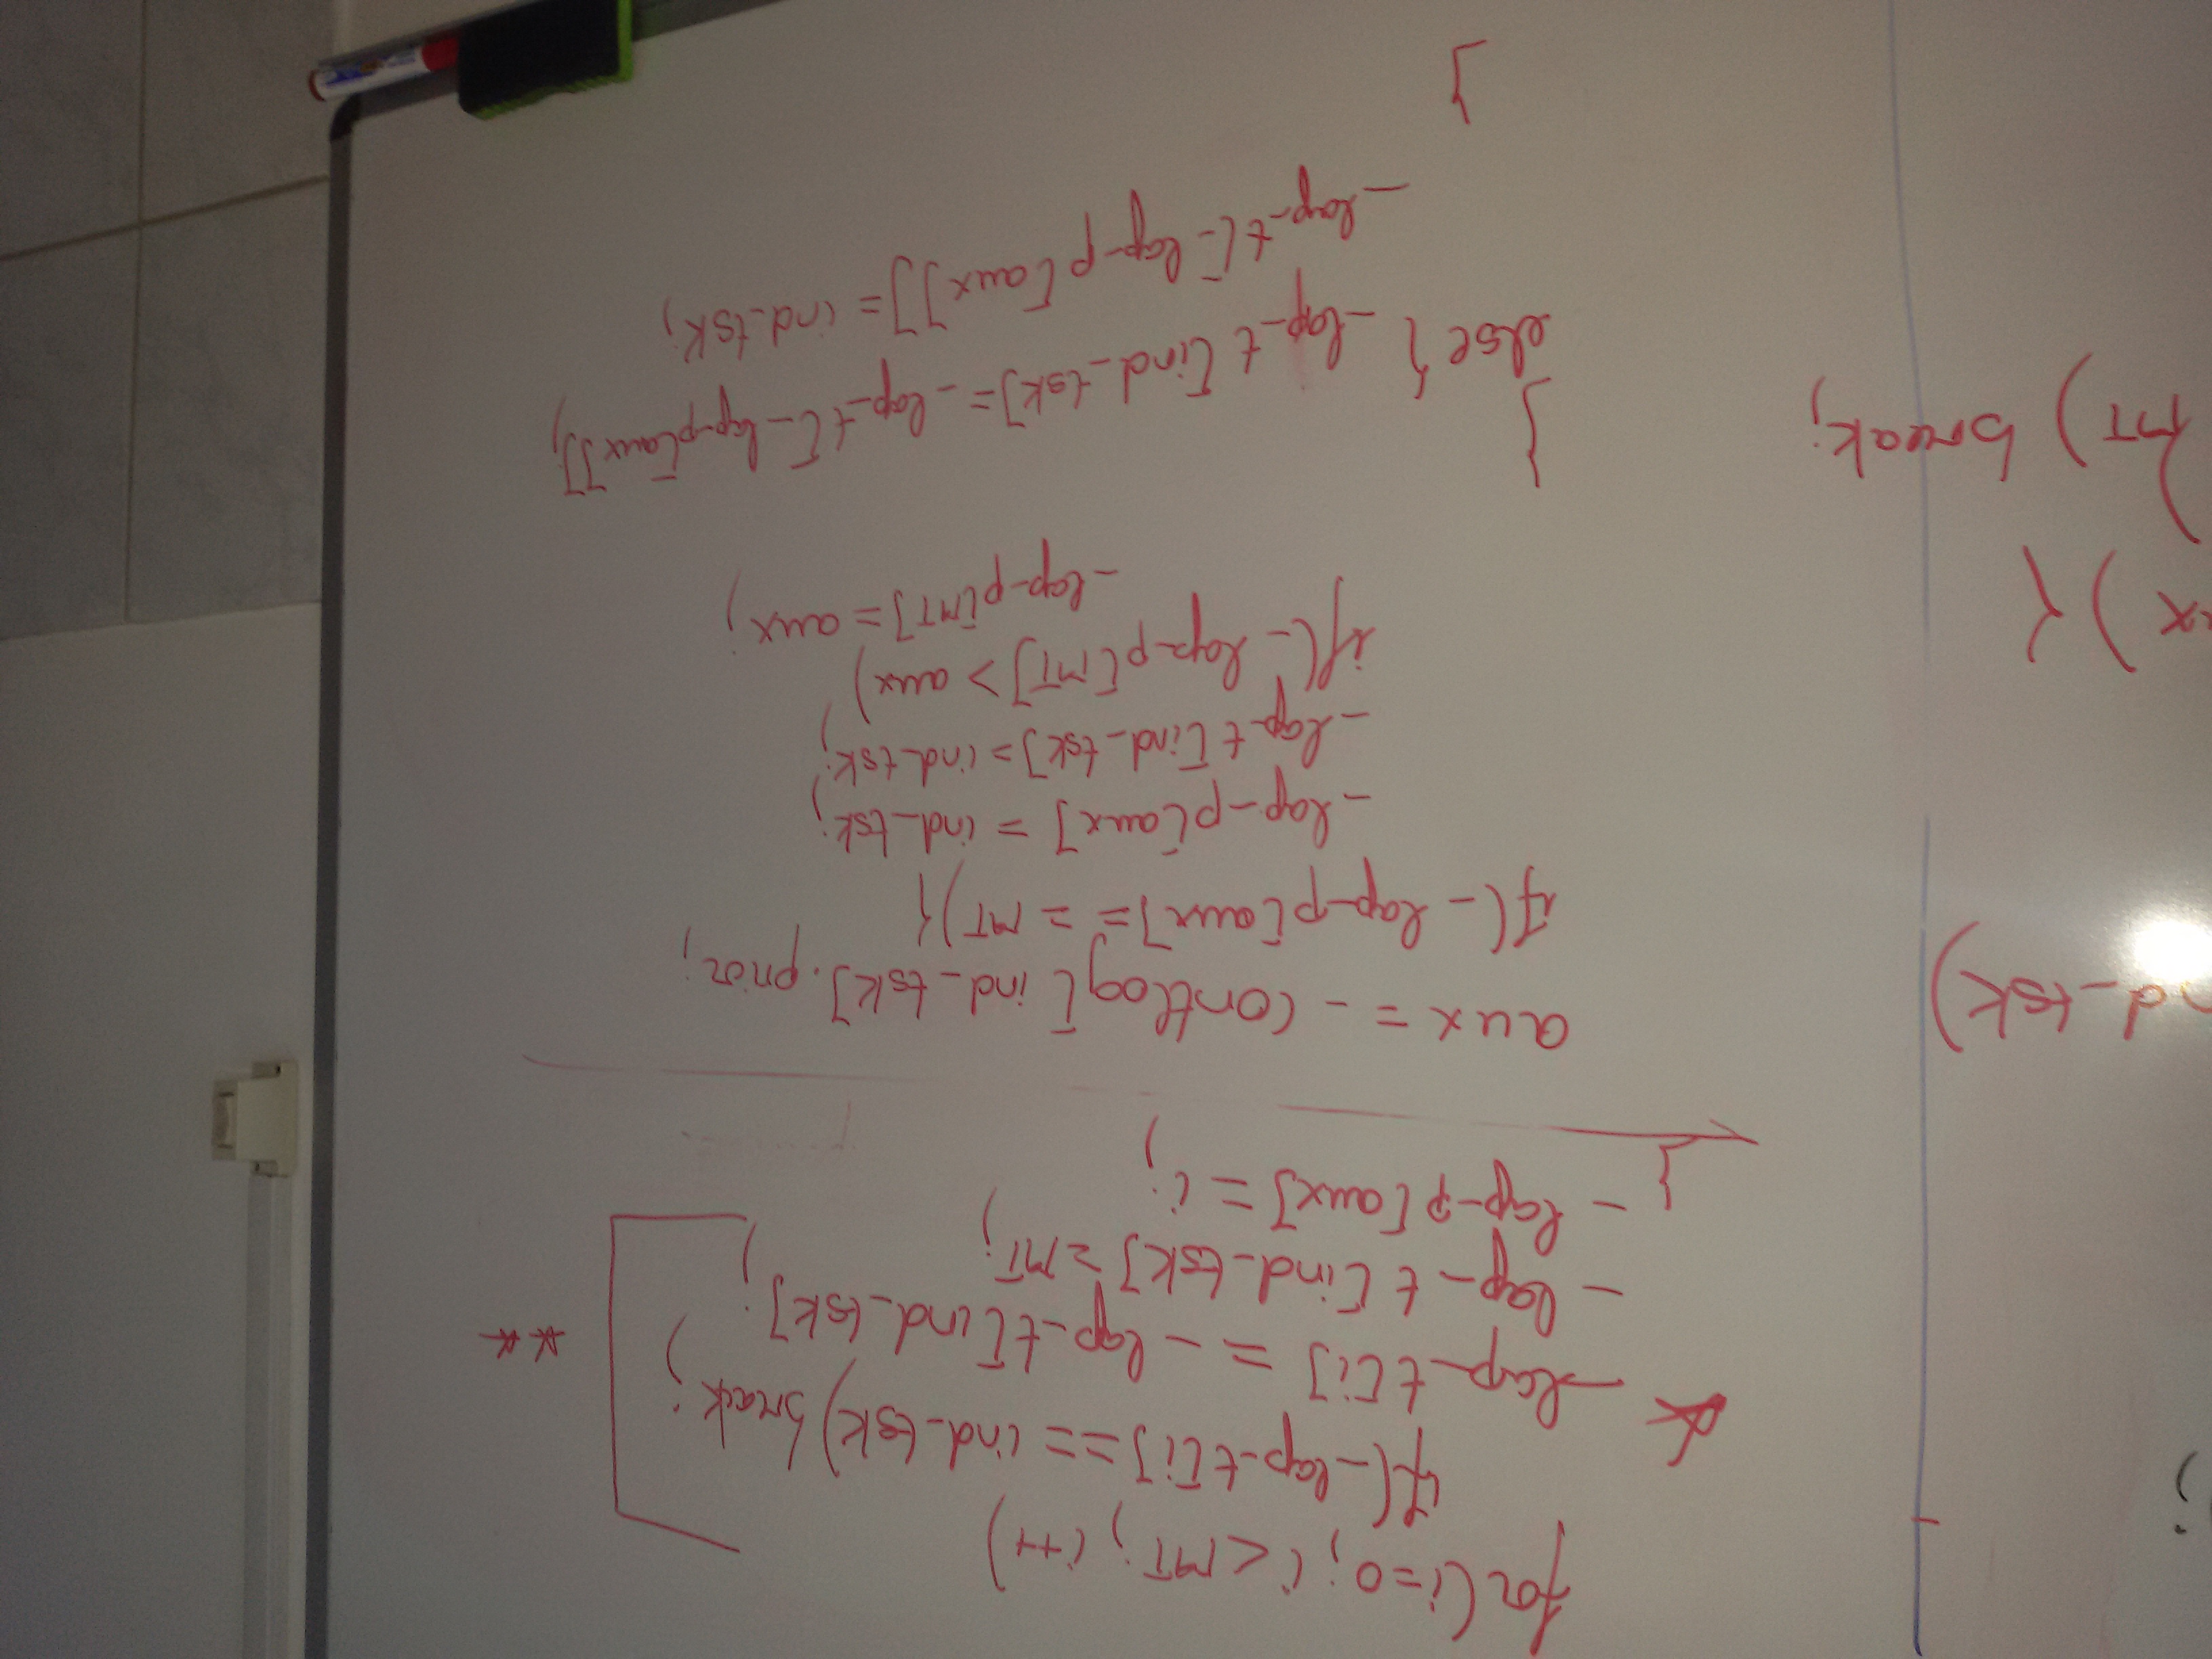 );
for(i=0; i<MT; i++)
if(_lap_t[i]==ind_tsk)break;
_lap_t[i] = _lap_t[ind_tsk];
**
_lap_t[ind_tsk]=MT;
} _lap_p[aux]=i;
nd_tsk)
aux = _contlog[ind_tsk].prior;
if(_lap_p[aux]==MT){
_lap_p[aux] = ind_tsk;
_lap_t[ind_tsk]=ind_tsk;
x){
if(_lap_p[MT]>aux)
_lap_p[MT]=aux;
)
MT) break;
}
else{ _lap_t[ind_tsk]=_lap_t[_lap_p[aux]];
_lap_t[_lap_p[aux]]=ind_tsk;
}